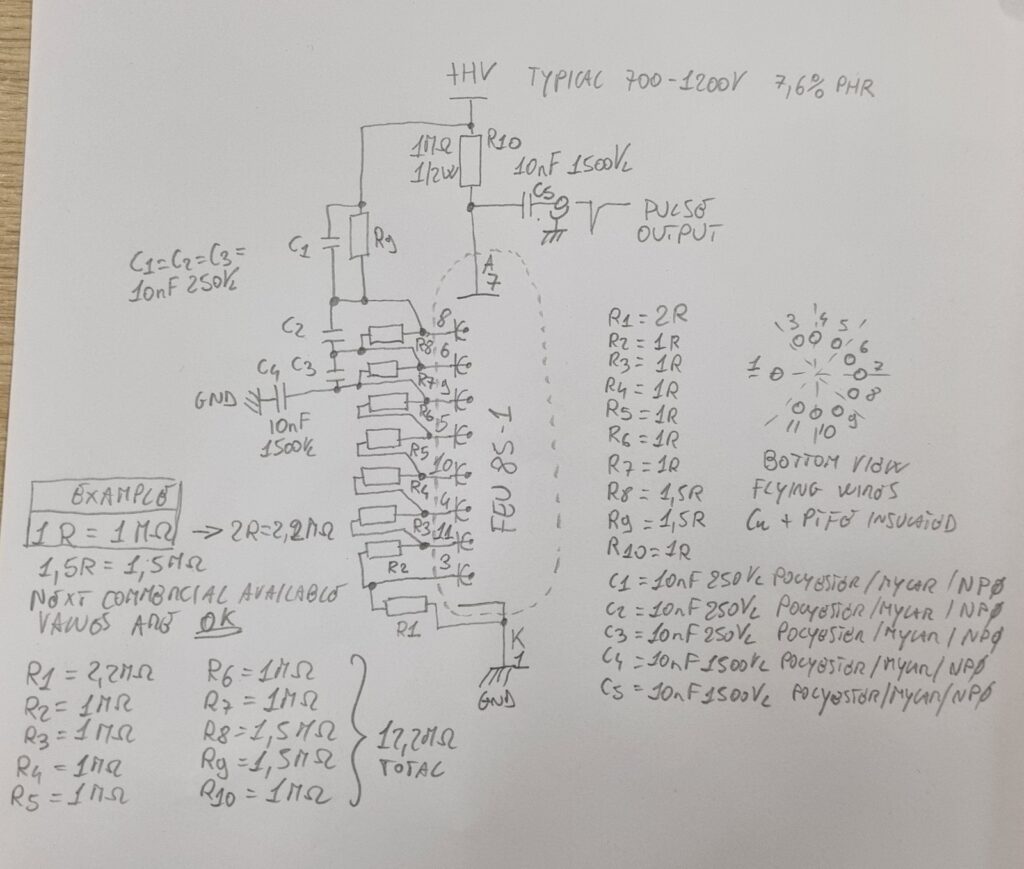 +HV TYPICAL 700-1200V 7,6% PHR
1MΩ
1/2W
R10
10nF 1500V=
C5
PULSE
OUTPUT
C1
R9
C1=C2=C3=
10nF 250V=
A
7
C2
8
R8
6
C4
C3
R7
9
GND
10nF
1500V=
R6
5
R5
10
R4
4
R3
11
R2
3
R1
FEU 85-1
K
1
GND
EXAMPLE
1R = 1MΩ → 2R=2,2MΩ
1,5R = 1,5MΩ
NEXT COMMERCIAL AVAILABLE
VALUES ARE OK
R1 = 2,2MΩ
R2 = 1MΩ
R3 = 1MΩ
R4 = 1MΩ
R5 = 1MΩ
R6 = 1MΩ
R7 = 1MΩ
R8 = 1,5MΩ
R9 = 1,5MΩ
R10 = 1MΩ
12,2MΩ
TOTAL
R1 = 2R
R2 = 1R
R3 = 1R
R4 = 1R
R5 = 1R
R6 = 1R
R7 = 1R
R8 = 1,5R
R9 = 1,5R
R10 = 1R
3 4 5
6
1 7
8
11 10 9
BOTTOM VIEW
FLYING WIRES
Cu + PTFE INSULATED
C1 = 10nF 250V= POLYESTER/MYLAR/NPØ
C2 = 10nF 250V= POLYESTER/MYLAR/NPØ
C3 = 10nF 250V= POLYESTER/MYLAR/NPØ
C4 = 10nF 1500V= POLYESTER/MYLAR/NPØ
C5 = 10nF 1500V= POLYESTER/MYLAR/NPØ